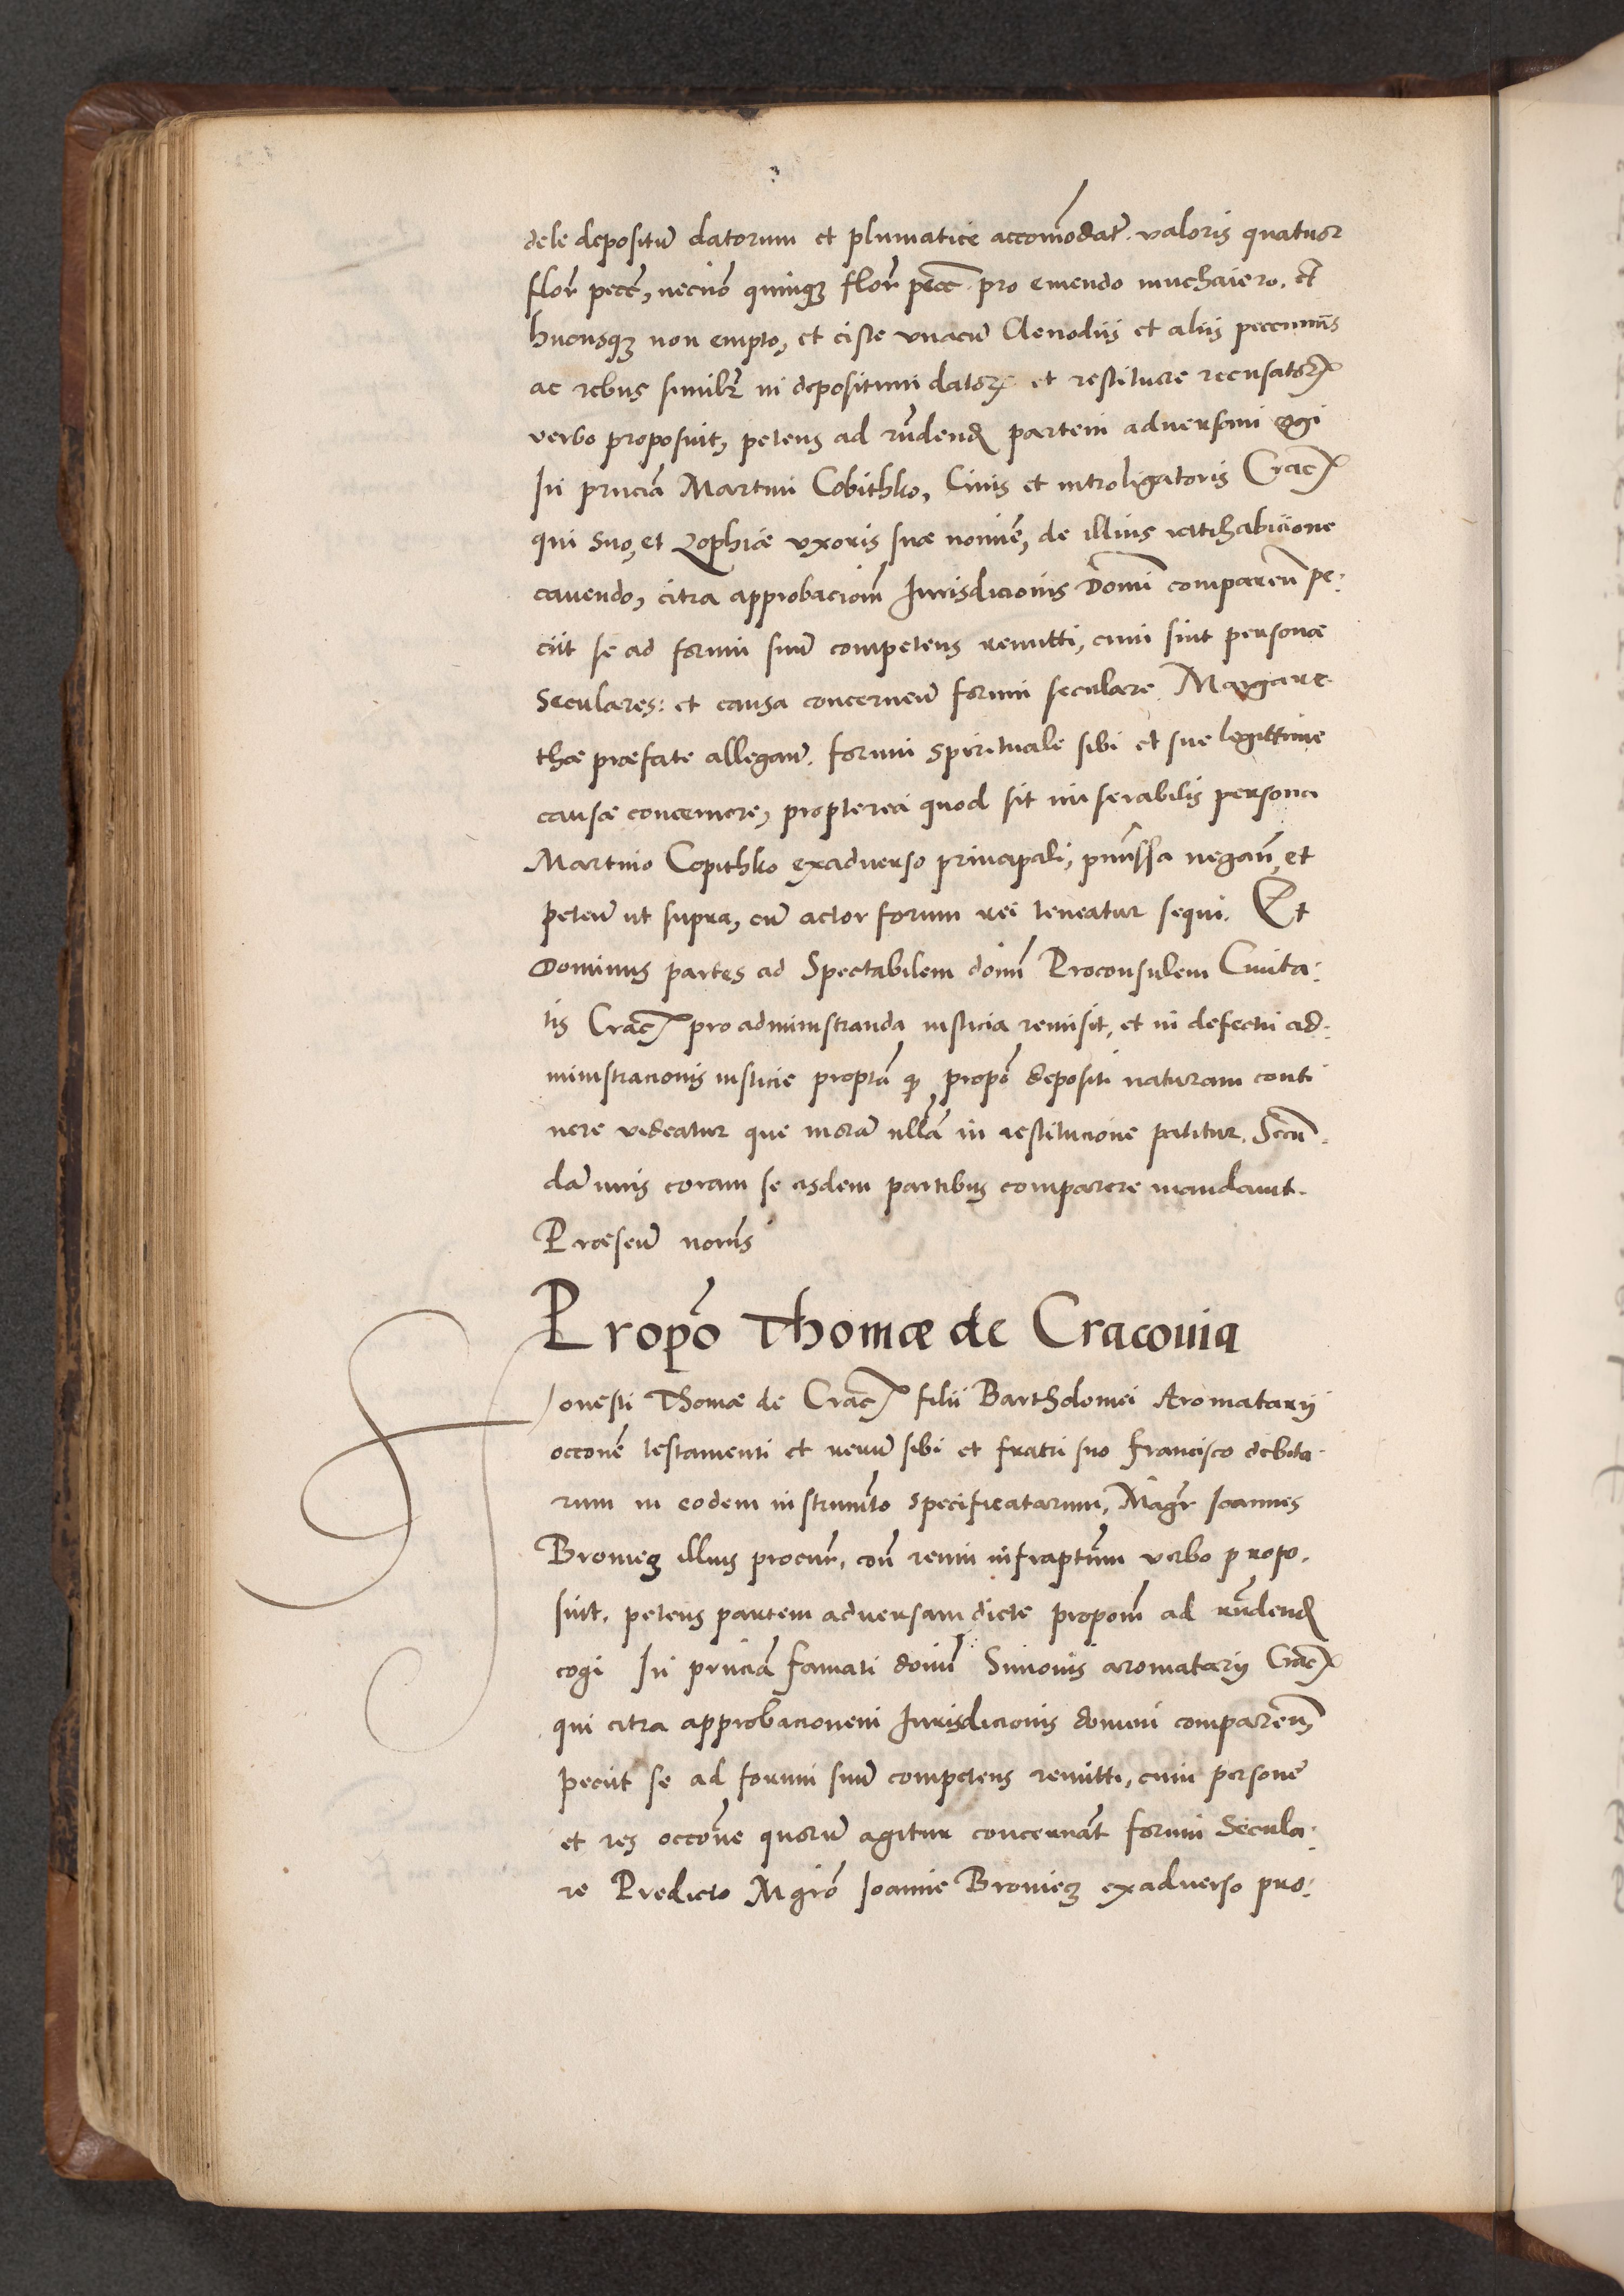 dele depositum̄ datorum et plumatice accom̄odat̄. valoris quatuor
flor̄ pecc̄, necnō quinq₃ flor̄ pecc̄ pro emendo muchaiero. et
hucusq₃ non empto, et ciste vnacū Clenodiis et aliis peccuniis
ac rebus similib₃ in depositum datoꝝ et restituere recusatoꝝ
verbo proposuit, petens ad rn̄dend partem aduersam cogi
In pn̄ciā Martini Cobithko, Ciuis et introligatoris Crac
qui suo, et Zophiæ vxoris suæ nomīe, de illius ratihabicione
cauendo, citra approbacionē Iurisdicionis Domī comparen̄ pe:
ciit se ad forum suū competens remitti, cum sint personæ
Seculares: et causa concernen̄ forum seculare. Margare
thæ præfate allegan̄. forum spirituale sibi et sue legittime
causæ concernere, propterea quod sit miserabilis persona
Martino Copithko exaduerso principali, pn̄missa negan̄, et
peten̄ ut supra, cū actor forum rei teneatur sequi. Et
Dominus partes ad Spectabilem domī Proconsulem Ciuita:
tis Crac pro administranda iusticia remisit, et in defectū ad:
ministracionis iusticie proptā ꝙ propō depositi naturam conti
nere videatur que morā ullā in restitucione patitur. Secun̄
dā iuris coram se eisdem partibus comparere mandauit.
Præsen̄ notīs
Propō Thomæ de Cracouia
Honesti Thomæ de Crac filii Bartholomei Aromatarij
occōnē testamenti et rerū sibi et fratri suo francisco debita
rum in eodem instrumēto specificatarum, Magr̄ Ioannes
Broniez illius procur̄, con̄ reum infraptum̄ verbo propo.
suit. petens partem aduersam dicte propon̄ ad rn̄dend
cogi In pn̄ciā famati domī Simonis aromatarij Crac
qui citra approbacionem Iurisdicionis domini comparen̄
peciit se ad forum suū competens remitti, cum persone
et res occōne quorū agitur concernāt forum Secula.
re Predicto Mgrō Ioanne Broniez exaduerso pro: